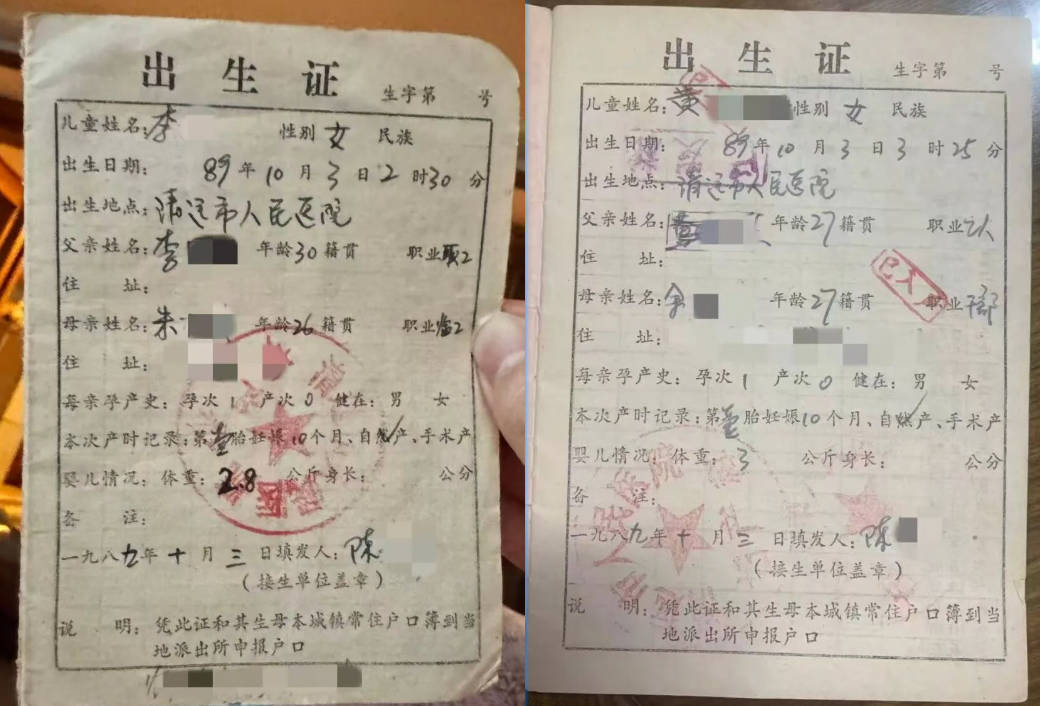 出生证
生字第 号
儿童姓名:李 性别 女 民族
出生日期: 89年10月3日2时30分
出生地点:清远市人民医院
父亲姓名:李 年龄30籍贯 职业
住 址:
母亲姓名:朱 年龄26籍贯 职业
住 址:
每亲孕产史:孕次1 产次0 健在:男 女
本次产时记录:第壹胎妊娠10个月、自然产、手术产
婴儿情况:体重:2.8 公斤身长: 公分
备 注:
一九八九年十月三日填发人:陈
(接生单位盖章)
说 明:凭此证和其生母本城镇常住户口簿到当
地派出所申报户口
出生证
生字第 号
儿童姓名:黄 性别 女 民族
出生日期: 89年10月3日3时25分
出生地点:清远市人民医院
父亲姓名: 年龄27籍贯 职业
住 址:
母亲姓名:余 年龄27籍贯 职业
住 址:
每亲孕产史:孕次1 产次0 健在:男 女
本次产时记录:第壹胎妊娠10个月、自然产、手术产
婴儿情况:体重:3 公斤身长: 公分
备 注:
一九八九年十月三日填发人:陈
(接生单位盖章)
说 明:凭此证和其生母本城镇常住户口簿到当
地派出所申报户口